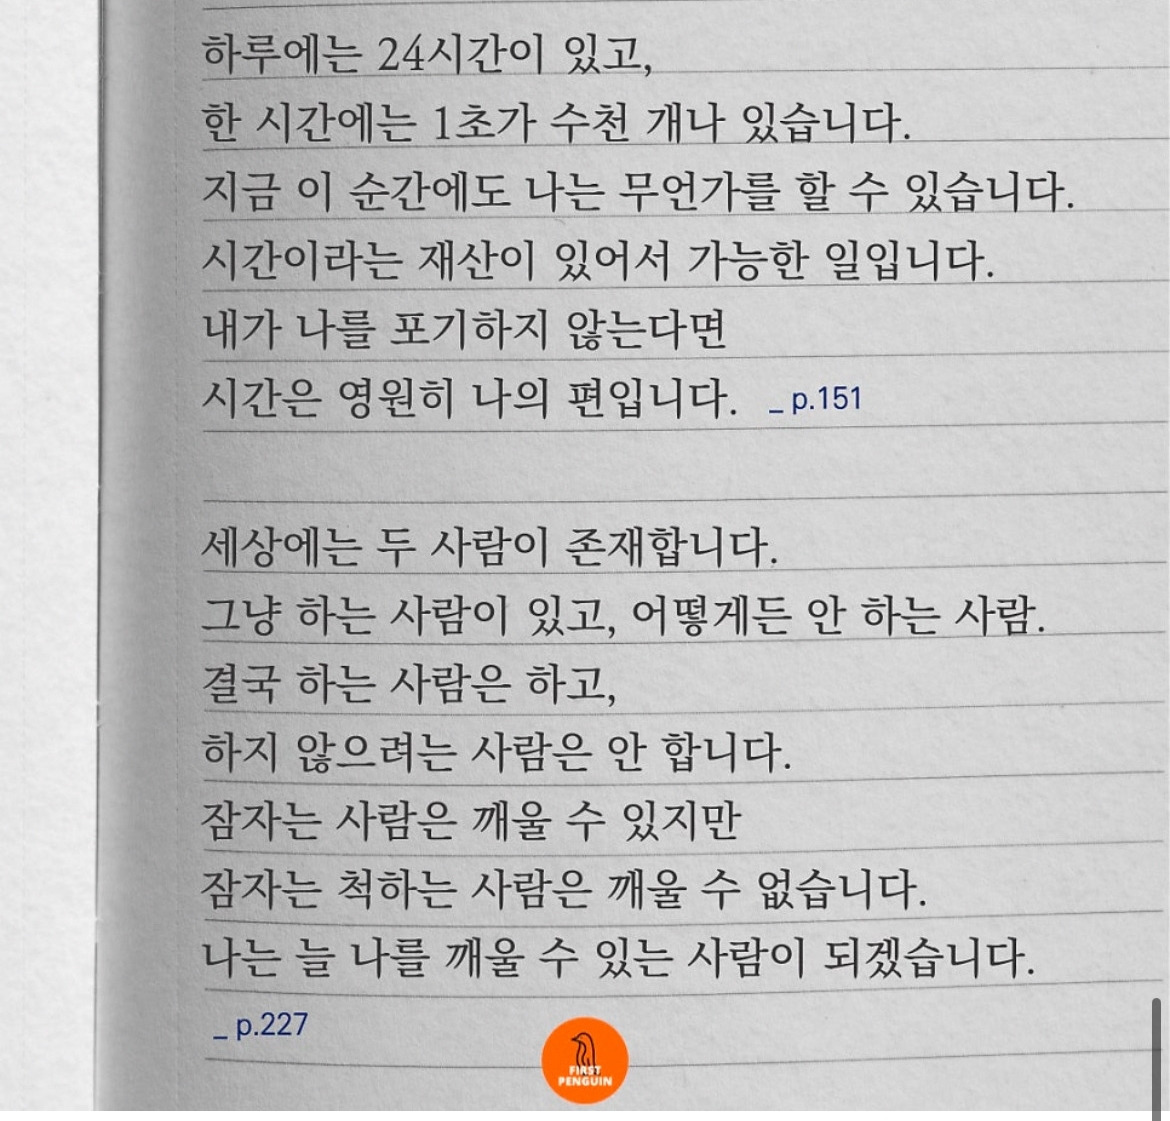 하루에는 24시간이 있고,
한 시간에는 1초가 수천 개나 있습니다.
지금 이 순간에도 나는 무언가를 할 수 있습니다.
시간이라는 재산이 있어서 가능한 일입니다.
내가 나를 포기하지 않는다면
시간은 영원히 나의 편입니다. _ p.151
세상에는 두 사람이 존재합니다.
그냥 하는 사람이 있고, 어떻게든 안 하는 사람.
결국 하는 사람은 하고,
하지 않으려는 사람은 안 합니다.
잠자는 사람은 깨울 수 있지만
잠자는 척하는 사람은 깨울 수 없습니다.
나는 늘 나를 깨울 수 있는 사람이 되겠습니다.
_ p.227
FIRST
PENGUIN